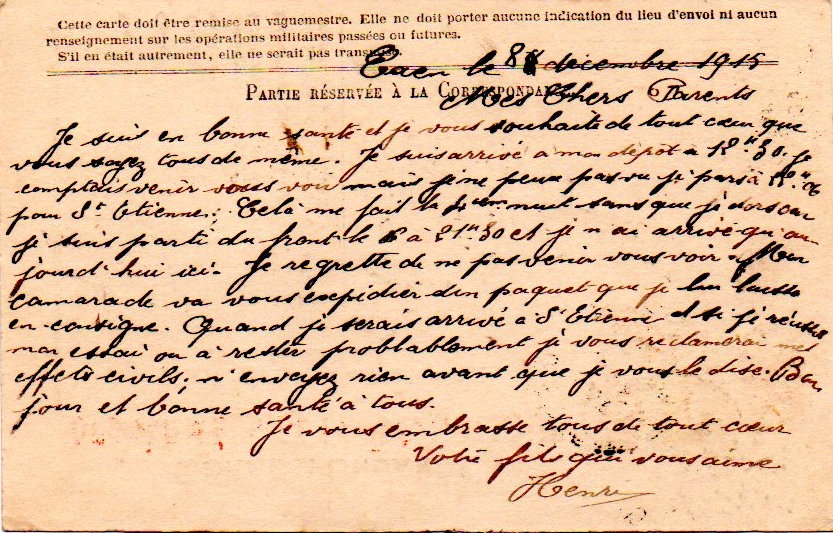 Cette carte doit être remise au vaguemestre. Elle ne doit porter aucune indication du lieu d'envoi ni aucun
renseignement sur les opérations militaires passées ou futures.
S'il en était autrement, elle ne serait pas transmise.
Caen le 8 décembre 1915
PARTIE RÉSERVÉE À LA CORRESPONDANCE
Mes Chers Parents
Je suis en bonne santé et je vous souhaite de tout cœur que
vous soyez tous de même. Je suis arrivé a mon dépôt a 12h 30. Je
comptais venir vous voir mais je ne peux pas vu je pars à
pour St Etienne. Celà me fait la 4em nuit sans que je dors car
je suis parti du front le 6 à 21h 30 et je n'ai arrivé qu'au
jourd'hui ici. Je regrette de ne pas venir vous voir. Mon
camarade va vous expidier d'un paquet que je lui laisse
en consigne. Quand je serais arrivé à St Etienne et si je réussis
mon essai ou à rester problablement je vous reclamerai mes
effets civils. n'envoyez rien avant que je vous le dise. Bon
jour et bonne santé à tous.
Je vous embrasse tous de tout cœur
Votre fils qui vous aime
Henri